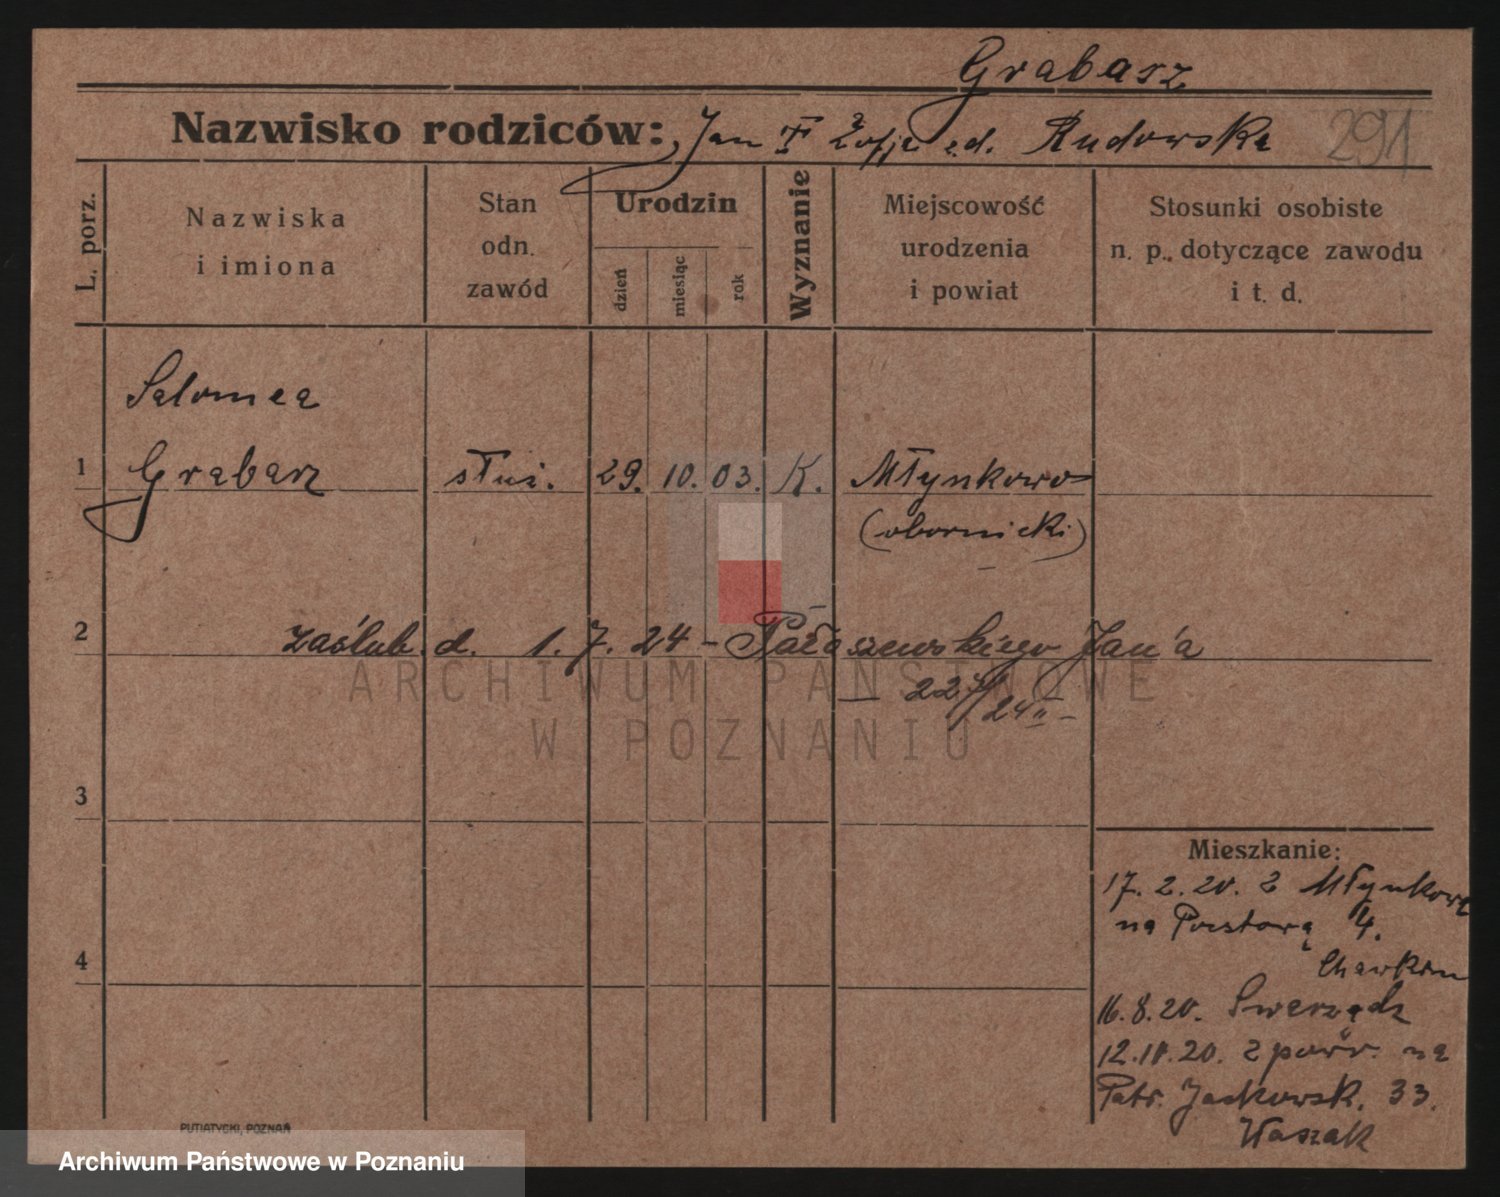 Grabasz
Nazwisko rodziców: Jan Zofja Rudowska 291
L. porz.
Nazwiska
i imiona
Stan
odn.
zawód
Urodzin
dzień
miesiąc
rok
Wyznanie
Miejscowość
urodzenia
i powiat
Stosunki osobiste
n. p. dotyczące zawodu
i t. d.
Salomea
1 Grabasz służ. 29. 10. 03. K. Młynkowo
(obornicki)
2 zaślub. d. 1. 7. 24 - Pałaszewskiego Jan'a
ARCHIWUM PAŃSTWOWE
W POZNANIU
3
Mieszkanie:
17. 2. 20. z Młynkowa
na Pocztową 4.
4
16. 8. 20. Swarzędz
12.11.20. z powr. na
Patr. Jackowsk. 33.
Waszak
PUTIATYCKI, POZNAŃ
Archiwum Państwowe w Poznaniu